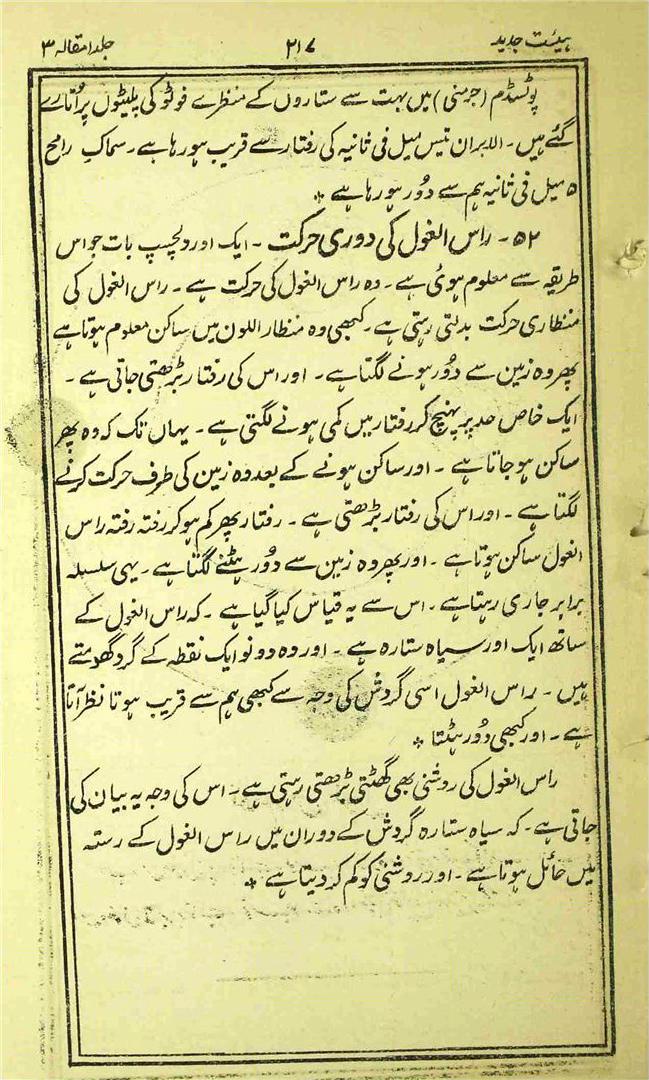 ہیئت جدید ۲۱۷ جلد ا مقالہ ۳
پوٹسڈم (جرمنی) میں بہت سے ستاروں کے منظرے فوٹو کی پلیٹوں پر اُتارے
گئے ہیں۔ الدبران تیس میل فی ثانیہ کی رفتار سے قریب ہو رہا ہے۔ سماکِ رامح
۵ میل فی ثانیہ ہم سے دُور ہو رہا ہے *
۵۲۔ راس الغول کی دوری حرکت ۔ ایک اور دلچسپ بات جو اس
طریقہ سے معلوم ہوئی ہے۔ وہ راس الغول کی حرکت ہے ۔ راس الغول کی
منظاری حرکت بدلتی رہتی ہے۔ کبھی وہ منظار اللون میں ساکن معلوم ہوتا ہے
پھر وہ زمین سے دُور ہونے لگتا ہے۔ اور اس کی رفتار بڑھتی جاتی ہے ۔
ایک خاص حد پر پہنچ کر رفتار میں کمی ہونے لگتی ہے۔ یہاں تک کہ وہ پھر
ساکن ہو جاتا ہے ۔ اور ساکن ہونے کے بعد وہ زمین کی طرف حرکت کرنے
لگتا ہے ۔ اور اس کی رفتار بڑھتی ہے ۔ رفتار پھر کم ہو کر رفتہ رفتہ راس
الغول ساکن ہوتا ہے ۔ اور پھر وہ زمین سے دُور ہٹنے لگتا ہے۔ یہی سلسلہ
برابر جاری رہتا ہے ۔ اس سے یہ قیاس کیا گیا ہے ۔ کہ راس الغول کے
ساتھ ایک اور سیاہ ستارہ ہے ۔ اور وہ دونو ایک نقطہ کے گرد گھومتے
ہیں ۔ راس الغول اسی گردش کی وجہ سے کبھی ہم سے قریب ہوتا نظر آتا
ہے ۔ اور کبھی دُور ہٹتا *
راس الغول کی روشنی بھی گھٹتی بڑھتی رہتی ہے۔ اس کی وجہ یہ بیان کی
جاتی ہے۔ کہ سیاہ ستارہ گردش کے دوران میں راس الغول کے رستہ
میں حائل ہوتا ہے ۔ اور روشنی کو کم کر دیتا ہے *